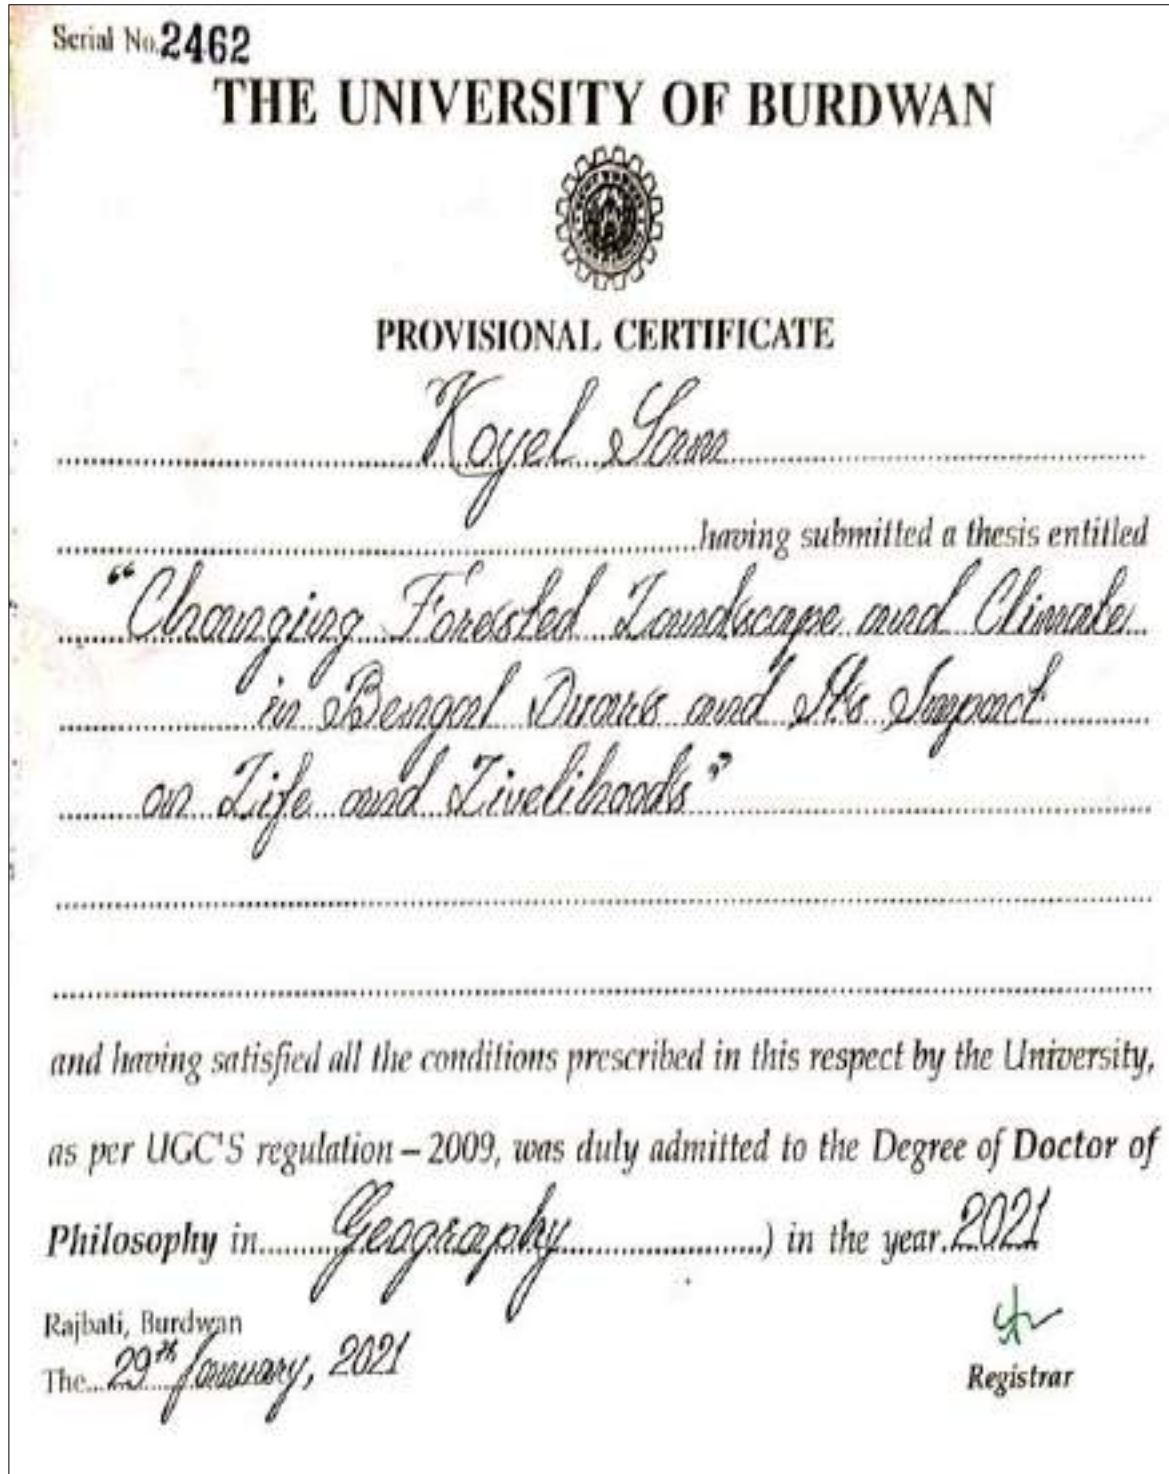 Serial No. 2462
THE UNIVERSITY OF BURDWAN
PROVISIONAL CERTIFICATE
Koyel Sam
having submitted a thesis entitled
“Changing Forested Landscape and Climate
in Bengal Duars and It's Impact
on Life and Livelihoods”
and having satisfied all the conditions prescribed in this respect by the University,
as per UGC'S regulation – 2009, was duly admitted to the Degree of Doctor of
Philosophy in Geography ) in the year 2021
Rajbati, Burdwan
The 29th January, 2021
Registrar